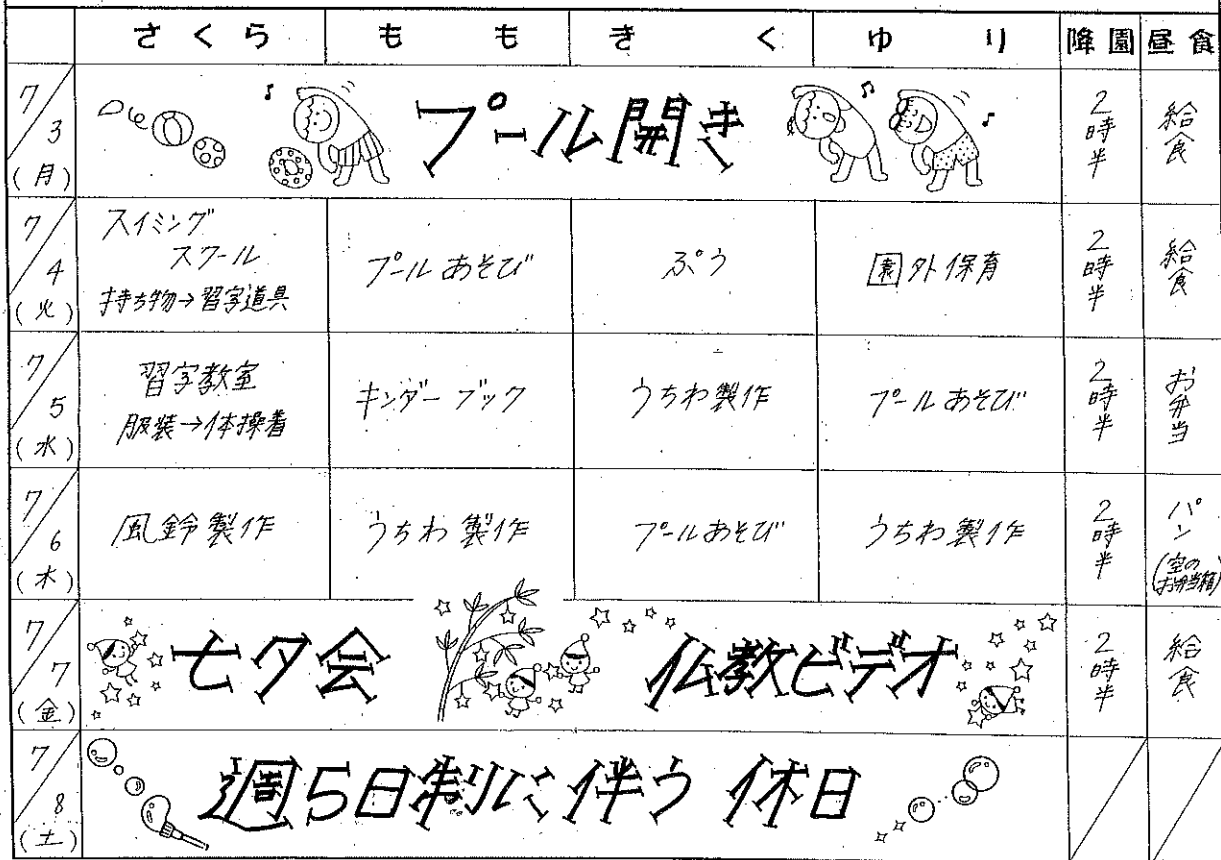 さくら もも きく ゆり 降園 昼食
7/3(月) プール開き 2時半 給食
7/4(火) スイミング
スクール
持ち物→習字道具 プールあそび ぷう 園外保育 2時半 給食
7/5(水) 習字教室
服装→体操着 キンダーブック うちわ製作 プールあそび 2時半 お弁当
7/6(木) 風鈴製作 うちわ製作 プールあそび うちわ製作 2時半 パン
(空の
お弁当箱)
7/7(金) 七夕会 仏教ビデオ 2時半 給食
7/8(土) 週5日制に伴う休日